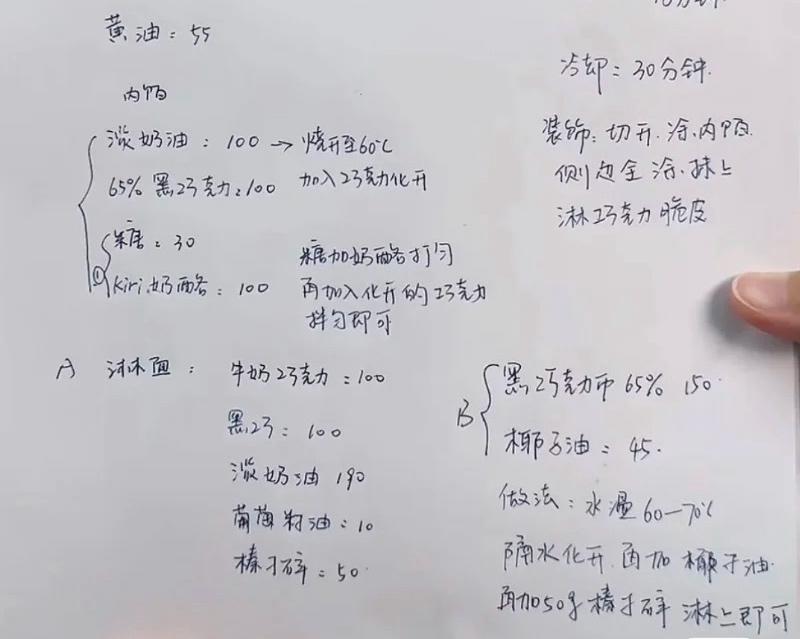 黄油：55
内馅
淡奶油：100 → 烧开至60℃
65%黑巧克力：100 加入巧克力化开
糖：30 糖加奶酪打匀
① Kiri奶酪：100 再加入化开的巧克力
拌匀即可
A 淋面：牛奶巧克力：100
黑巧：100
淡奶油 190
葡萄籽油：10
榛子碎：50
冷却：30分钟.
装饰：切开.涂内馅
侧边全涂.抹上
淋巧克力脆皮
B 黑巧克力币 65% 150
椰子油：45.
做法：水温60—70℃
隔水化开.再加椰子油.
再加50g榛子碎 淋上即可